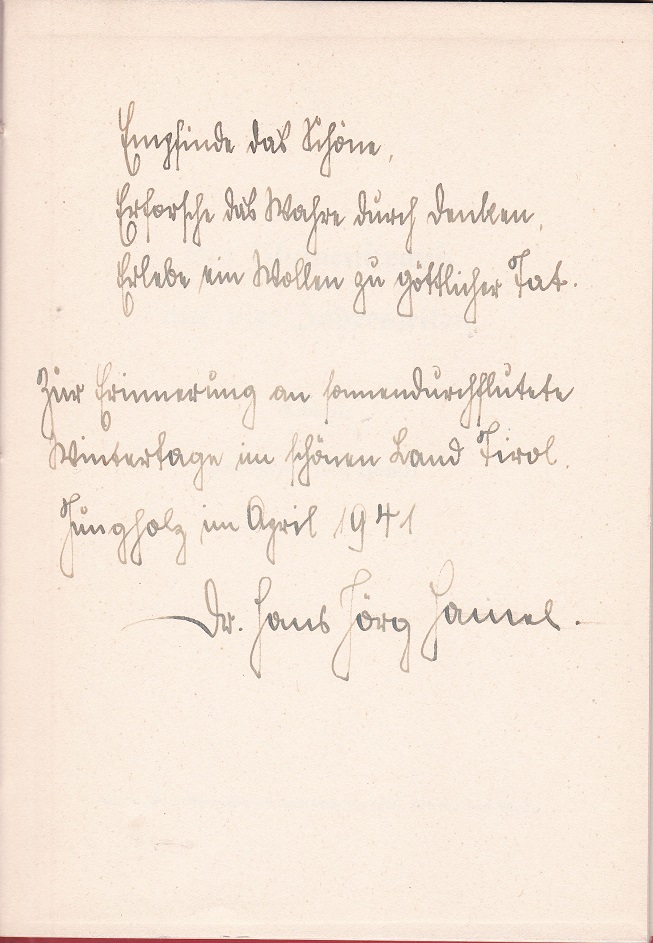 Empfinde das Schöne,
Erforsche das Wahre durch Denken,
Erlebe ein Wollen zu göttlicher Tat.
Zur Erinnerung an sonnendurchflutete
Wintertage im schönen Land Tirol.
Jungholz im April 1941
Dr. Hans Jörg Hamel.